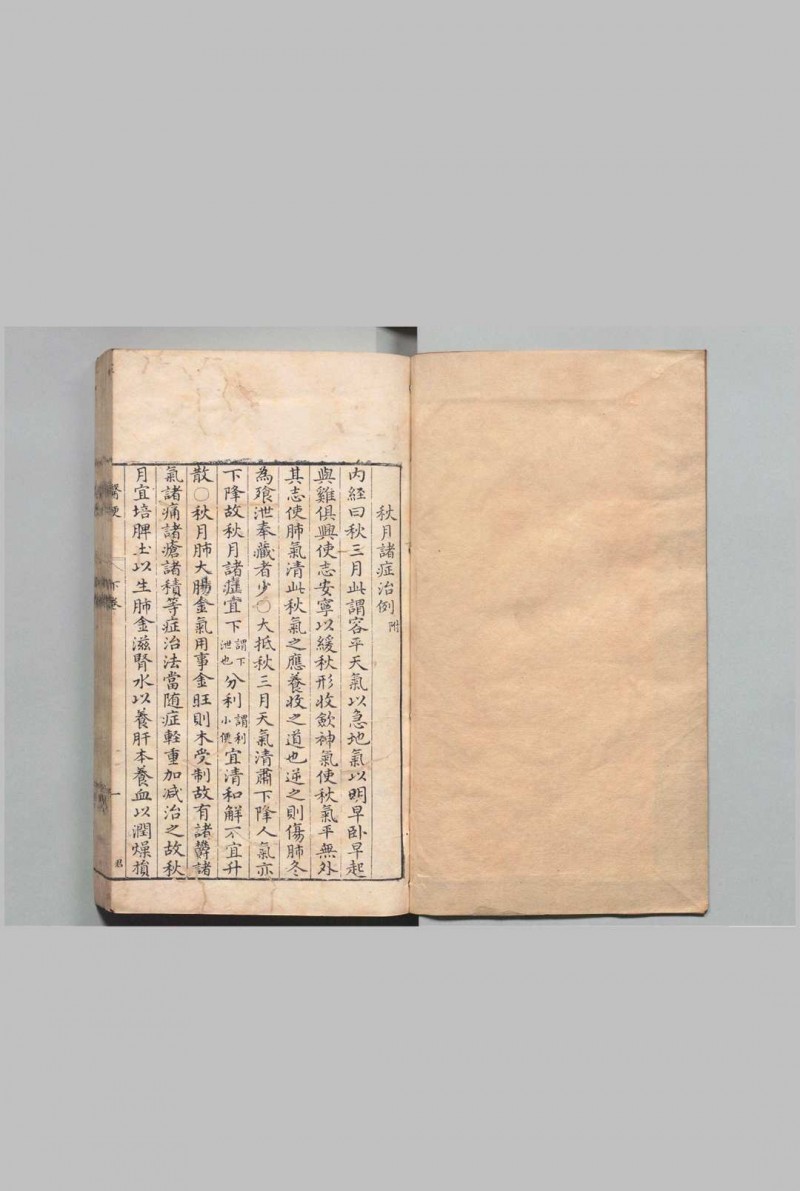 秋月諸症治例附
内經曰秋三月此謂容平天氣以急地氣以明早卧早起
與雞俱興使志安寧以緩秋形收斂神氣使秋氣平無外
其志使肺氣清此秋氣之應養收之道也逆之則傷肺冬
為飱泄奉藏者少○大抵秋三月天氣清肅下降人氣亦
下降故秋月諸症宜下謂下泄也分利謂利小便宜清和解不宜升
散○秋月肺大腸金氣用事金旺則木受制故有諸欝諸
氣諸痛諸瘡諸積等症治法當随症輕重加减治之故秋
月宜培脾土以生肺金滋腎水以養肝本養血以潤燥損
醫便
下卷
一